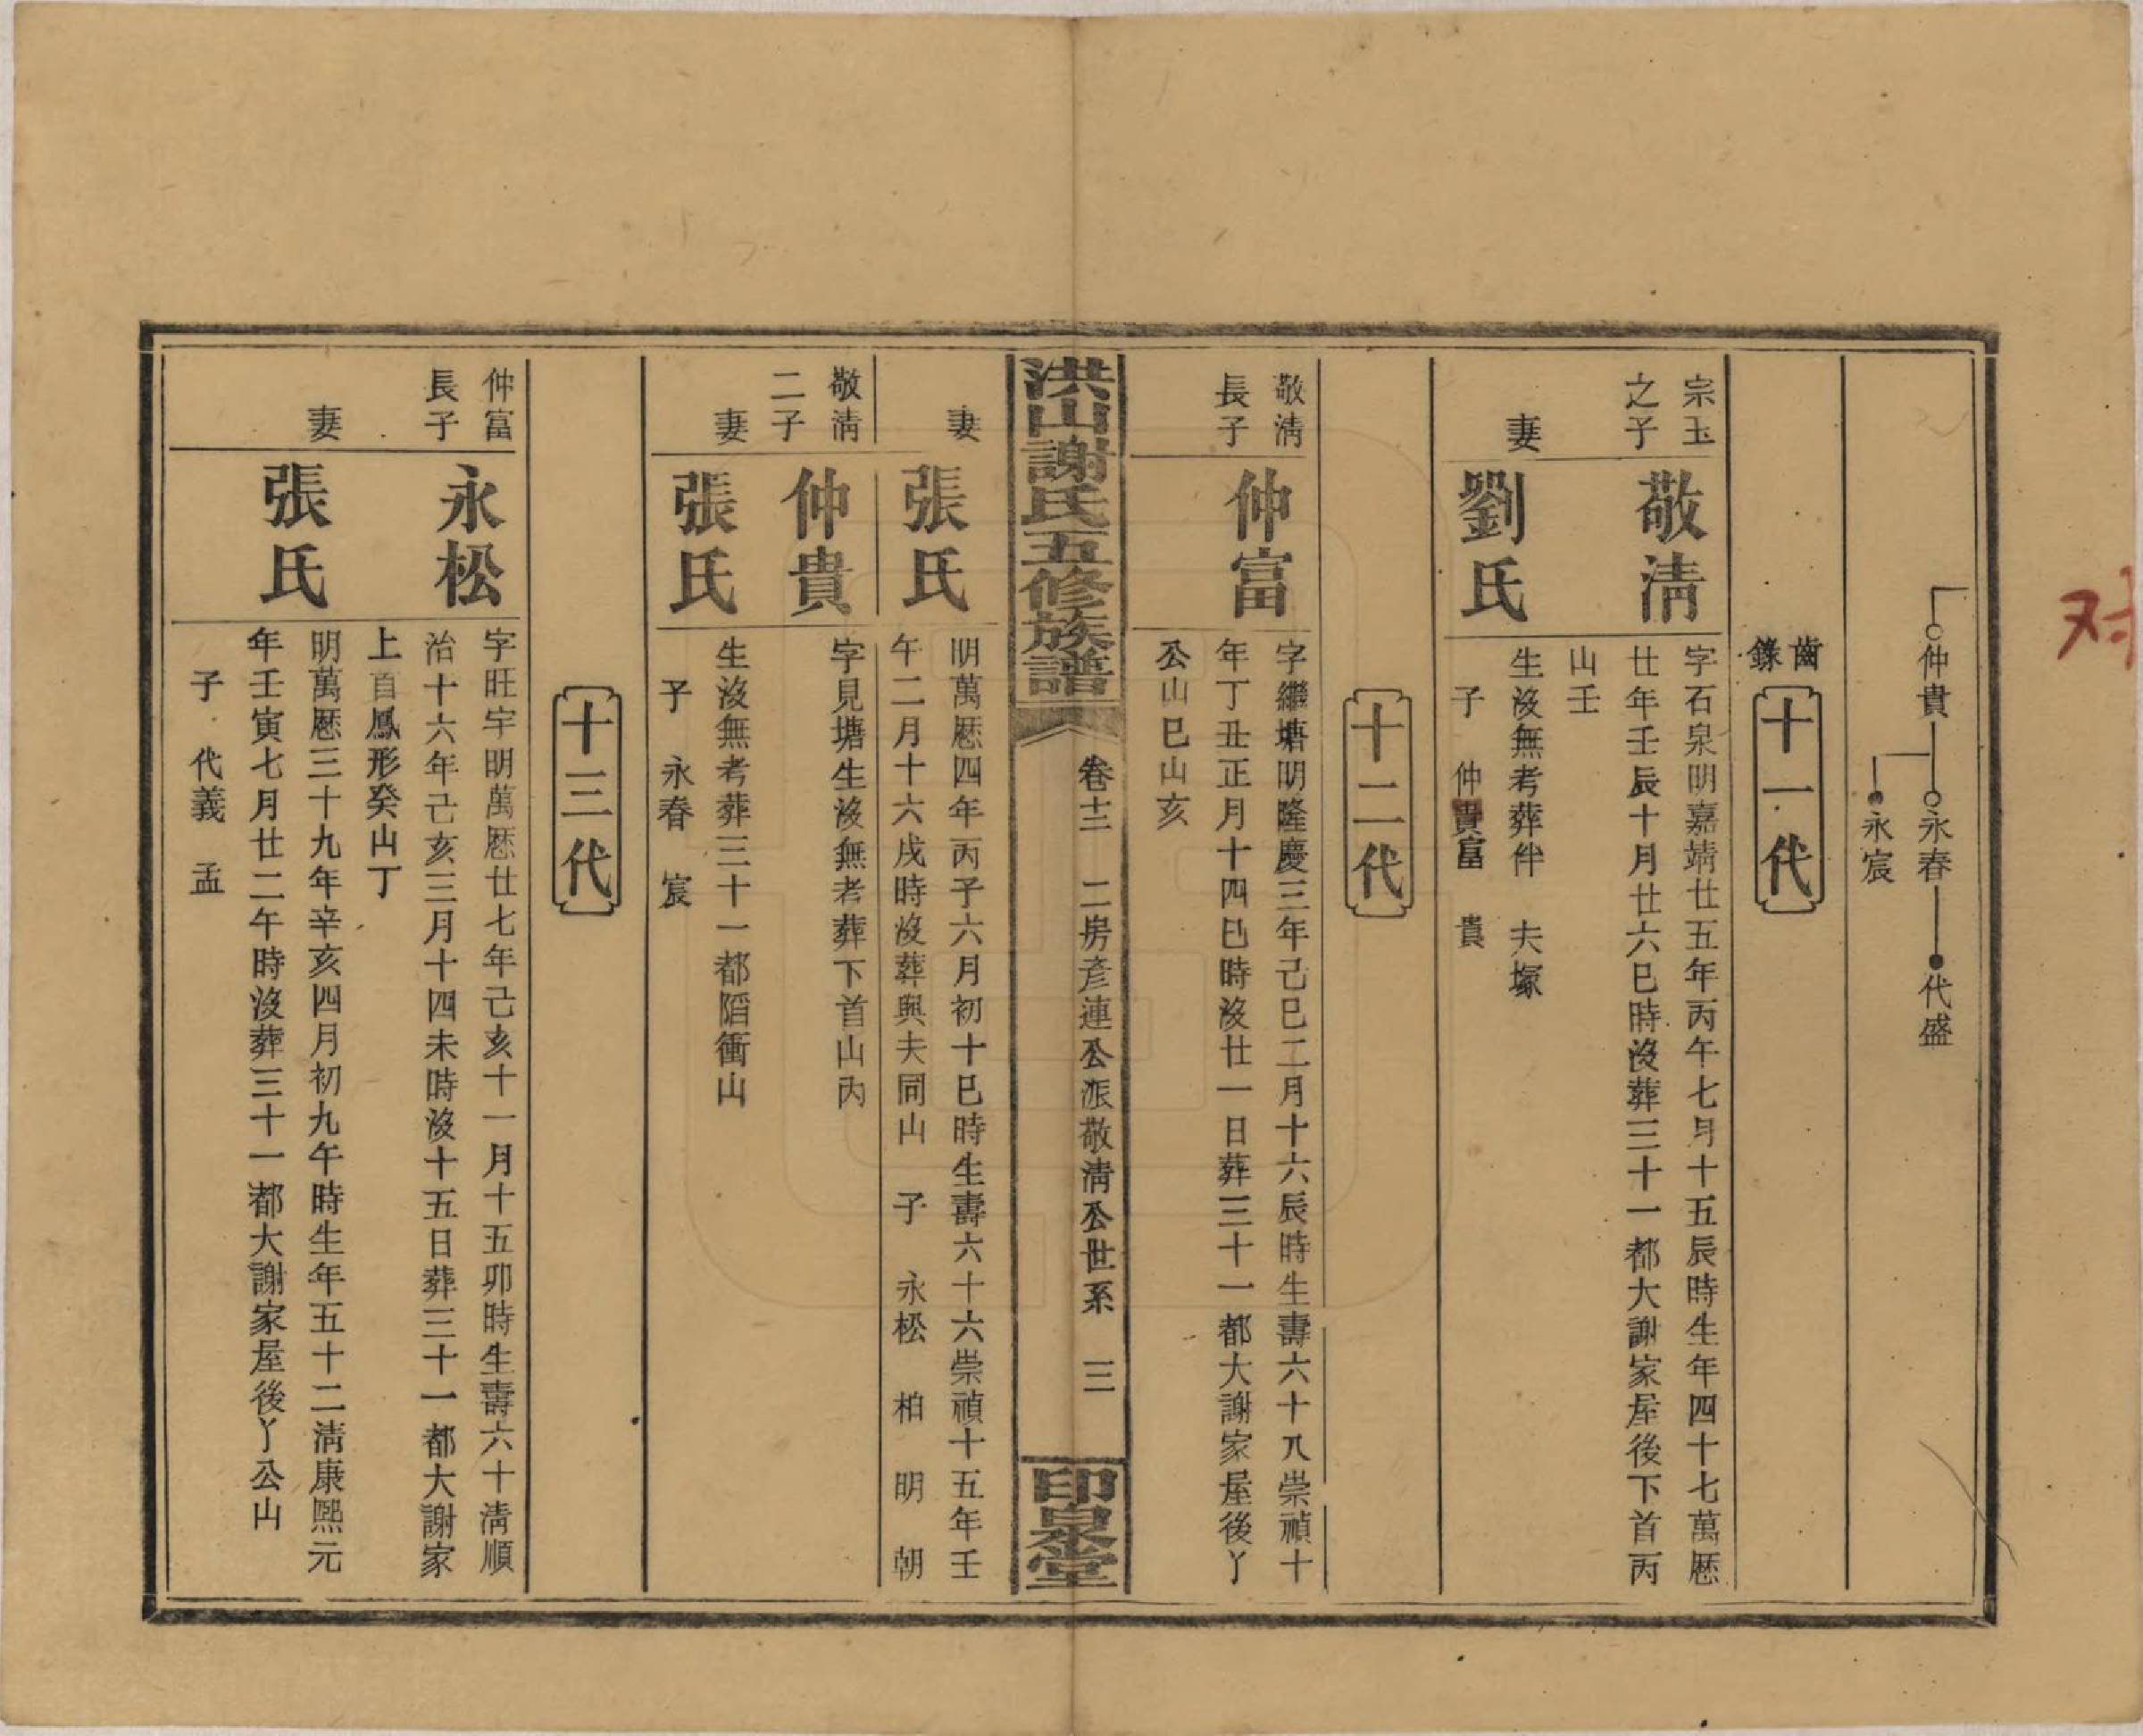 仲貴
永春
代盛
永宸
齒錄
十一代
宗玉之子
敬清
字石泉明嘉靖廿五年丙午七月十五辰時生年四十七萬厯
廿年壬辰十月廿六巳時沒葬三十一都大謝家屋後下首丙
山壬
妻
劉氏
生沒無考葬伴 夫塚
子 仲貴富 貴
十二代
敬清長子
仲富
字繼塘明隆慶三年己巳二月十六辰時生壽六十八崇禎十
年丁丑正月十四巳時沒廿一日葬三十一都大謝家屋後丫
公山巳山亥
洪山謝氏五修族譜
卷十三 二房彥連公派敬清公世系 三
印泉堂
妻
張氏
明萬厯四年丙子六月初十巳時生壽六十六崇禎十五年壬
午二月十六戌時沒葬與夫同山 子 永松 柏 明 朝
敬清二子
仲貴
字見塘生沒無考葬下首山丙
妻
張氏
生沒無考葬三十一都䧟衝山
子 永春 宸
十三代
仲富長子
永松
字旺宇明萬厯廿七年己亥十一月十五卯時生壽六十清順
治十六年己亥三月十四未時沒十五日葬三十一都大謝家
上首鳳形癸山丁
妻
張氏
明萬厯三十九年辛亥四月初九午時生年五十二清康熙元
年壬寅七月廿二午時沒葬三十一都大謝家屋後丫公山
子 代義 孟